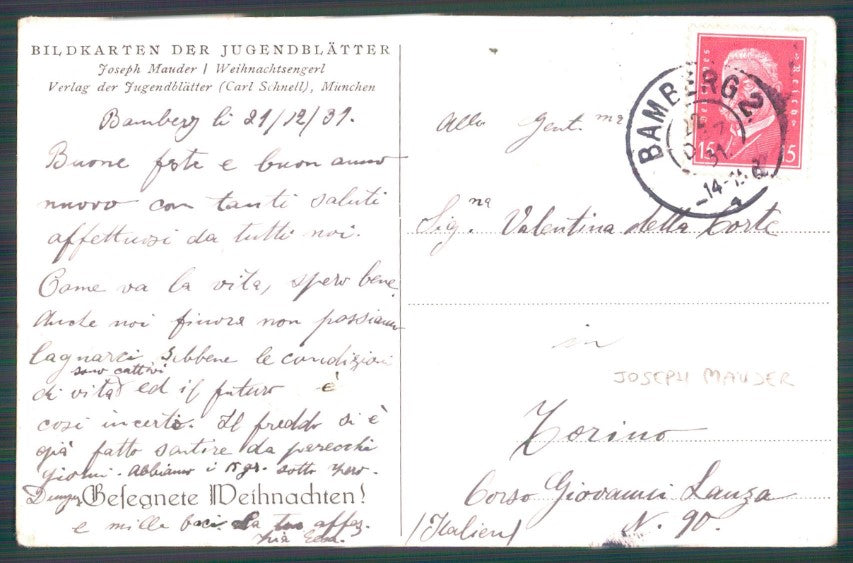 BILDKARTEN DER JUGENDBLÄTTER
Joseph Mauder / Weihnachtsengerl
Verlag der Jugendblätter (Carl Schnell), München
Bamberg li 21/12/31.
Buone feste e buon anno
nuovo con tanti saluti
affettuosi da tutti noi.
Come va la vita, spero bene.
Anche noi finora non possiamo
lagnarci sebbene le condizioni
di vita sono cattivi ed il futuro è
così incerto. Il freddo si è
già fatto sentire da parecchi
giorni. Abbiamo i 15 gr. sotto zero.
Gesegnete Weihnachten!
e mille baci la tua affez.
zia
Alla Gent.ma
Sig.na Valentina della Corte
in
JOSEPH MAUDER
Torino
Corso Giovanni Lanza
N. 90.
(Italien)
BAMBERG 2
Deutsches Reich
15 15
31